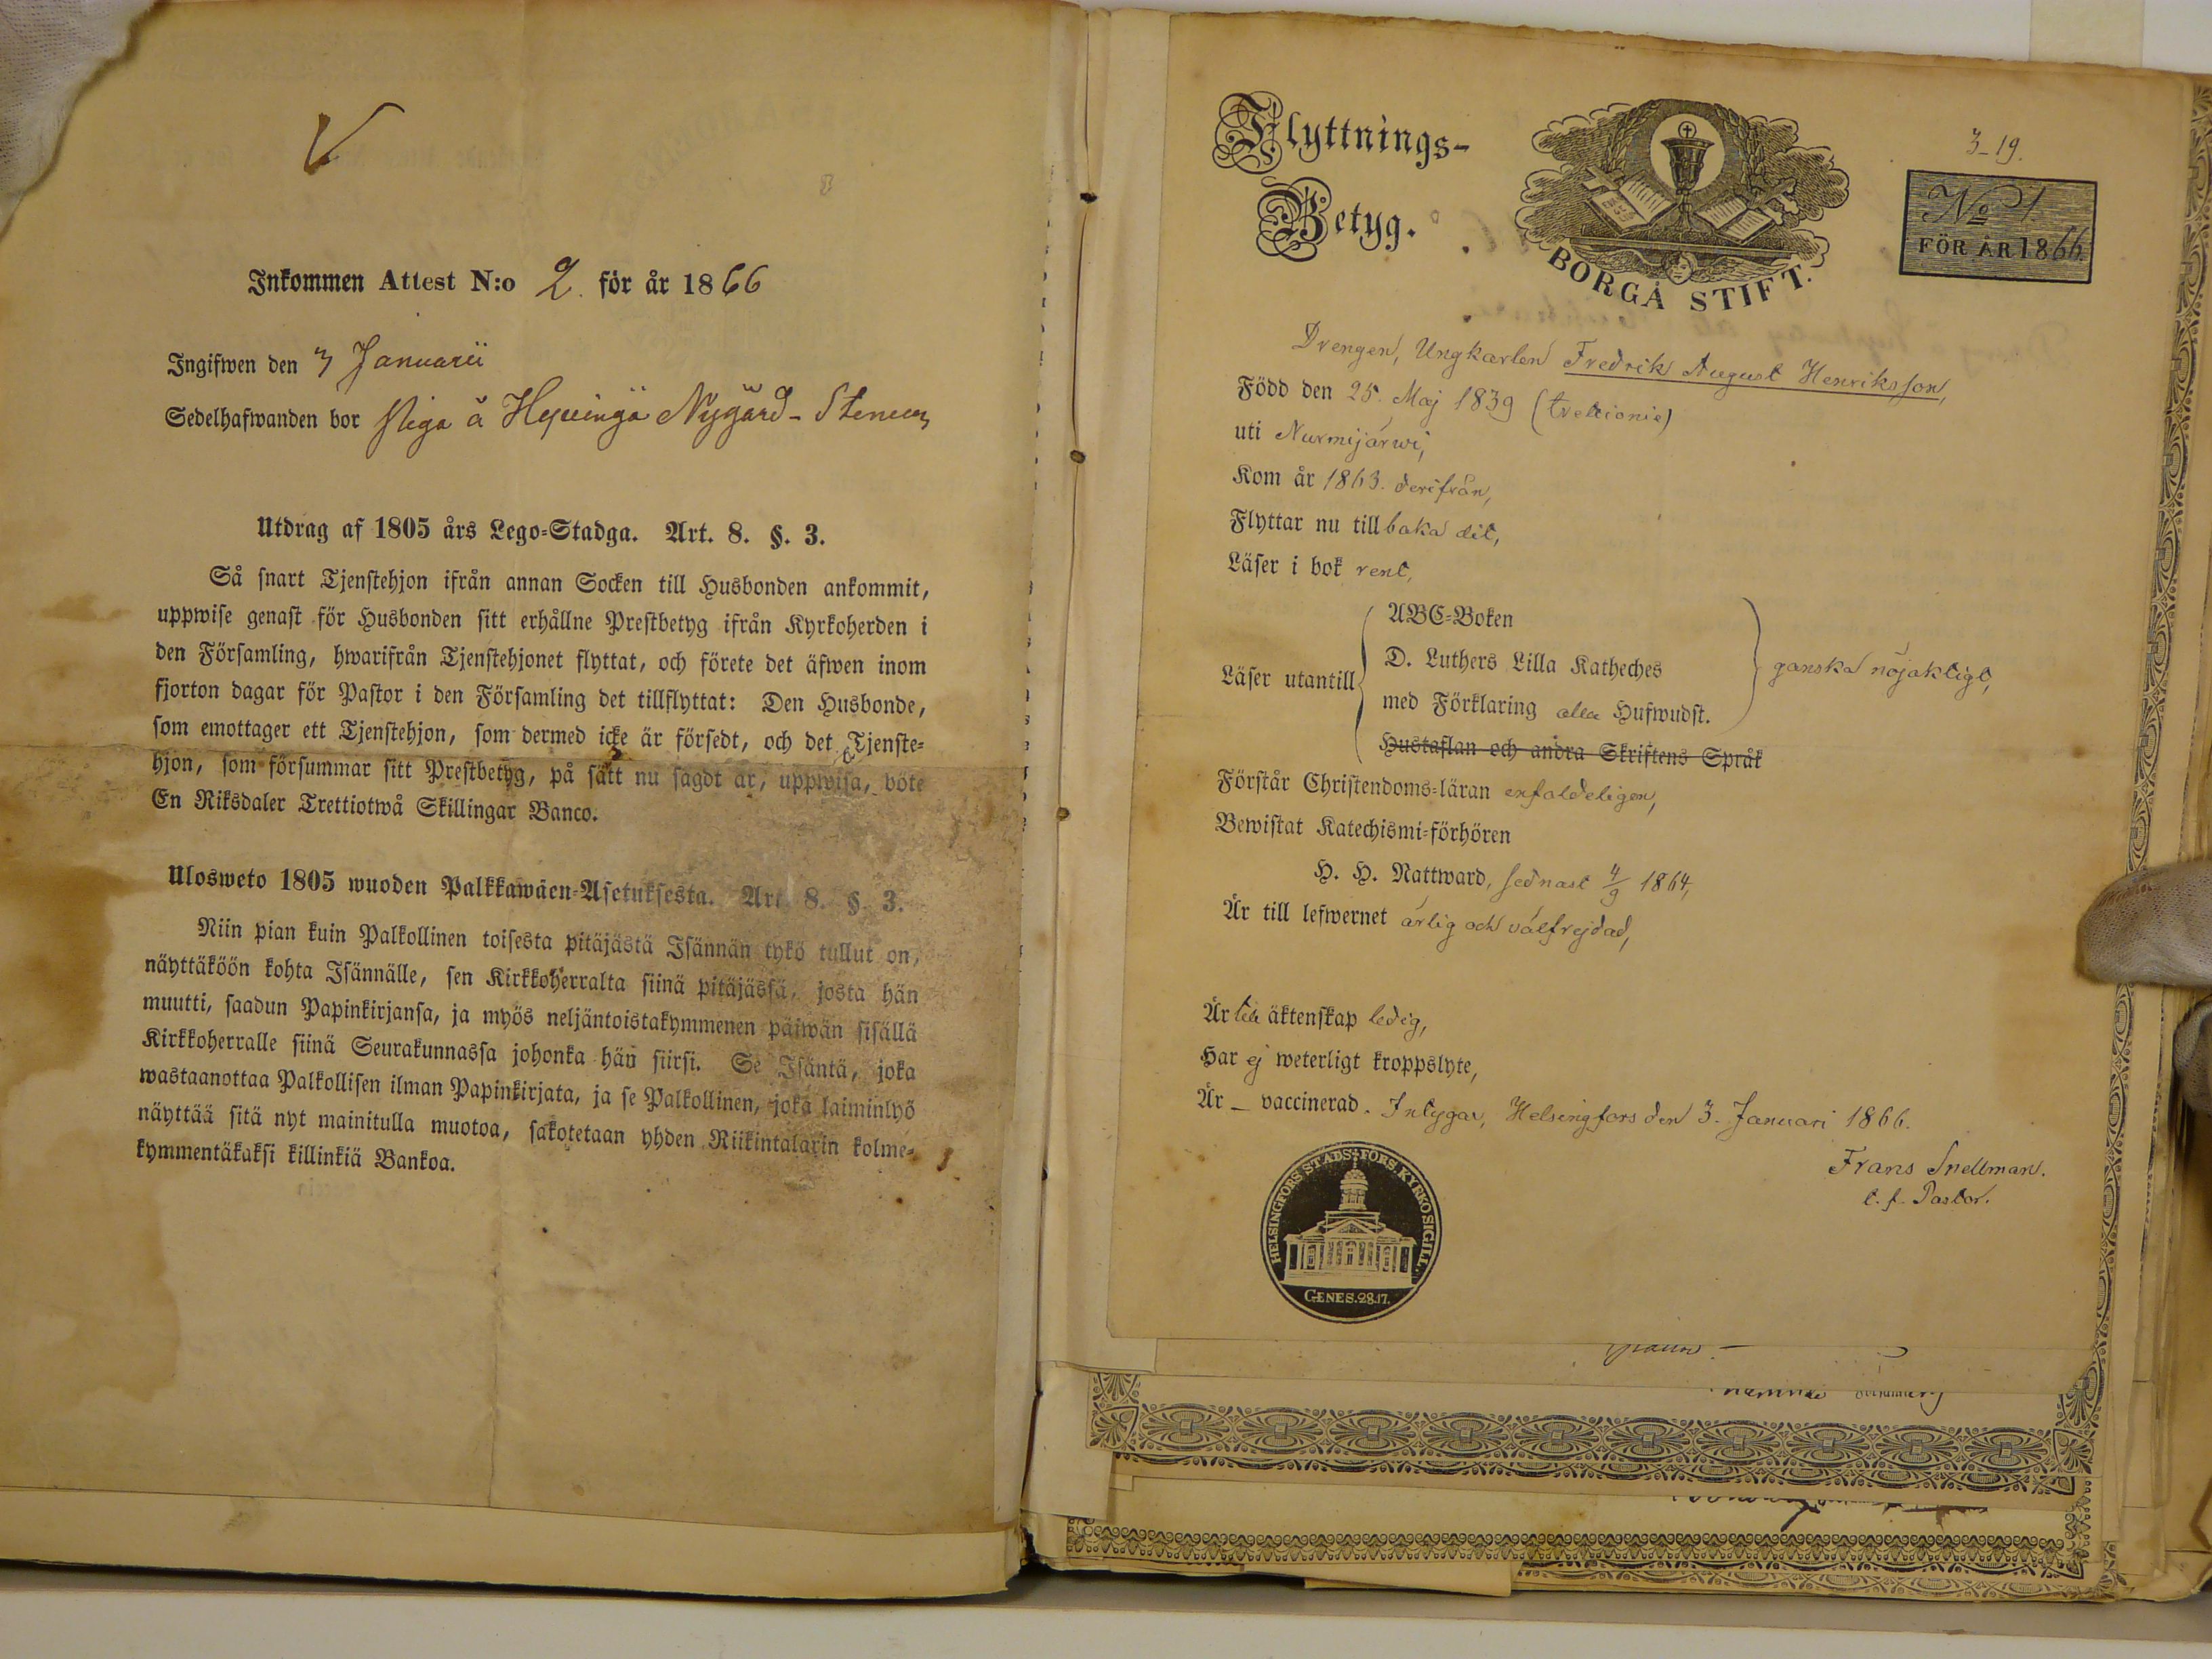 Inkommen Attest N:o 2. för år 1866
Ingifwen den 3 Januarii
Sedelhafwanden bor piga å Hyvingä Nygård - Stenun
Utdrag af 1805 års Lego-Stadga. Art. 8. §. 3.
Så snart Tjenstehjon ifrån annan Socken till Husbonden ankommit,
uppwise genast för Husbonden sitt erhållne Prestbetyg ifrån Kyrkoherden i
den Församling, hwarifrån Tjenstehjonet flyttat, och förete det äfwen inom
fjorton dagar för Pastor i den Församling det tillflyttat: Den Husbonde,
som emottager ett Tjenstehjon, som dermed icke är försedt, och det Tjenste-
hjon, som försummar sitt Prestbetyg, på sätt nu sagdt är, uppwisa, böte
En Riksdaler Trettiotwå Skillingar Banco.
Ulosweto 1805 wuoden Palkkawäen-Asetuksesta. Art. 8. §. 3.
Niin pian kuin Palkollinen toisesta pitäjästä Isännän tykö tullut on,
näyttäköön kohta Isännälle, sen Kirkkoherralta siinä pitäjässä, josta hän
muutti, saadun Papinkirjansa, ja myös neljäntoistakymmenen päiwän sisällä
Kirkkoherralle siinä Seurakunnassa johonka hän siirsi. Se Isäntä, joka
wastaanottaa Palkollisen ilman Papinkirjata, ja se Palkollinen, joka laiminlyö
näyttää sitä nyt mainitulla muotoa, sakotetaan yhden Riikintalarin kolme-
kymmentäkaksi killinkiä Bankoa.
Flyttnings-
Betyg.
BORGÅ STIFT.
3-19.
No 1.
FÖR ÅR 1866
Drengen, Ungkarlen Fredrik August Henriksson,
Född den 25. Maj 1839 (trettionie)
uti Nurmijärwi,
Kom år 1863. derifrån,
Flyttar nu tillbaka dit,
Läser i bok rent,
Läser utantill
ABC-Boken
D. Luthers Lilla Katheches
med Förklaring alla Hufwudst.
Hustaflan och andra Skriftens Språk
ganska nöjaktigt,
Förstår Christendoms-läran enfaldeligen,
Bewistat Katechismi-förhören
H. H. Nattward, sednast 4/9 1864,
Är till lefwernet ärlig och välfrejdad,
Är till äktenskap ledig,
Har ej weterligt kroppslyte,
Är _ vaccinerad. Intygar, Helsingfors den 3. Januari 1866.
Frans Snellman.
t. f. Pastor.
HELSINGFORS STADS FÖRS. KYRKO SIGILL.
GENES. 28.17.